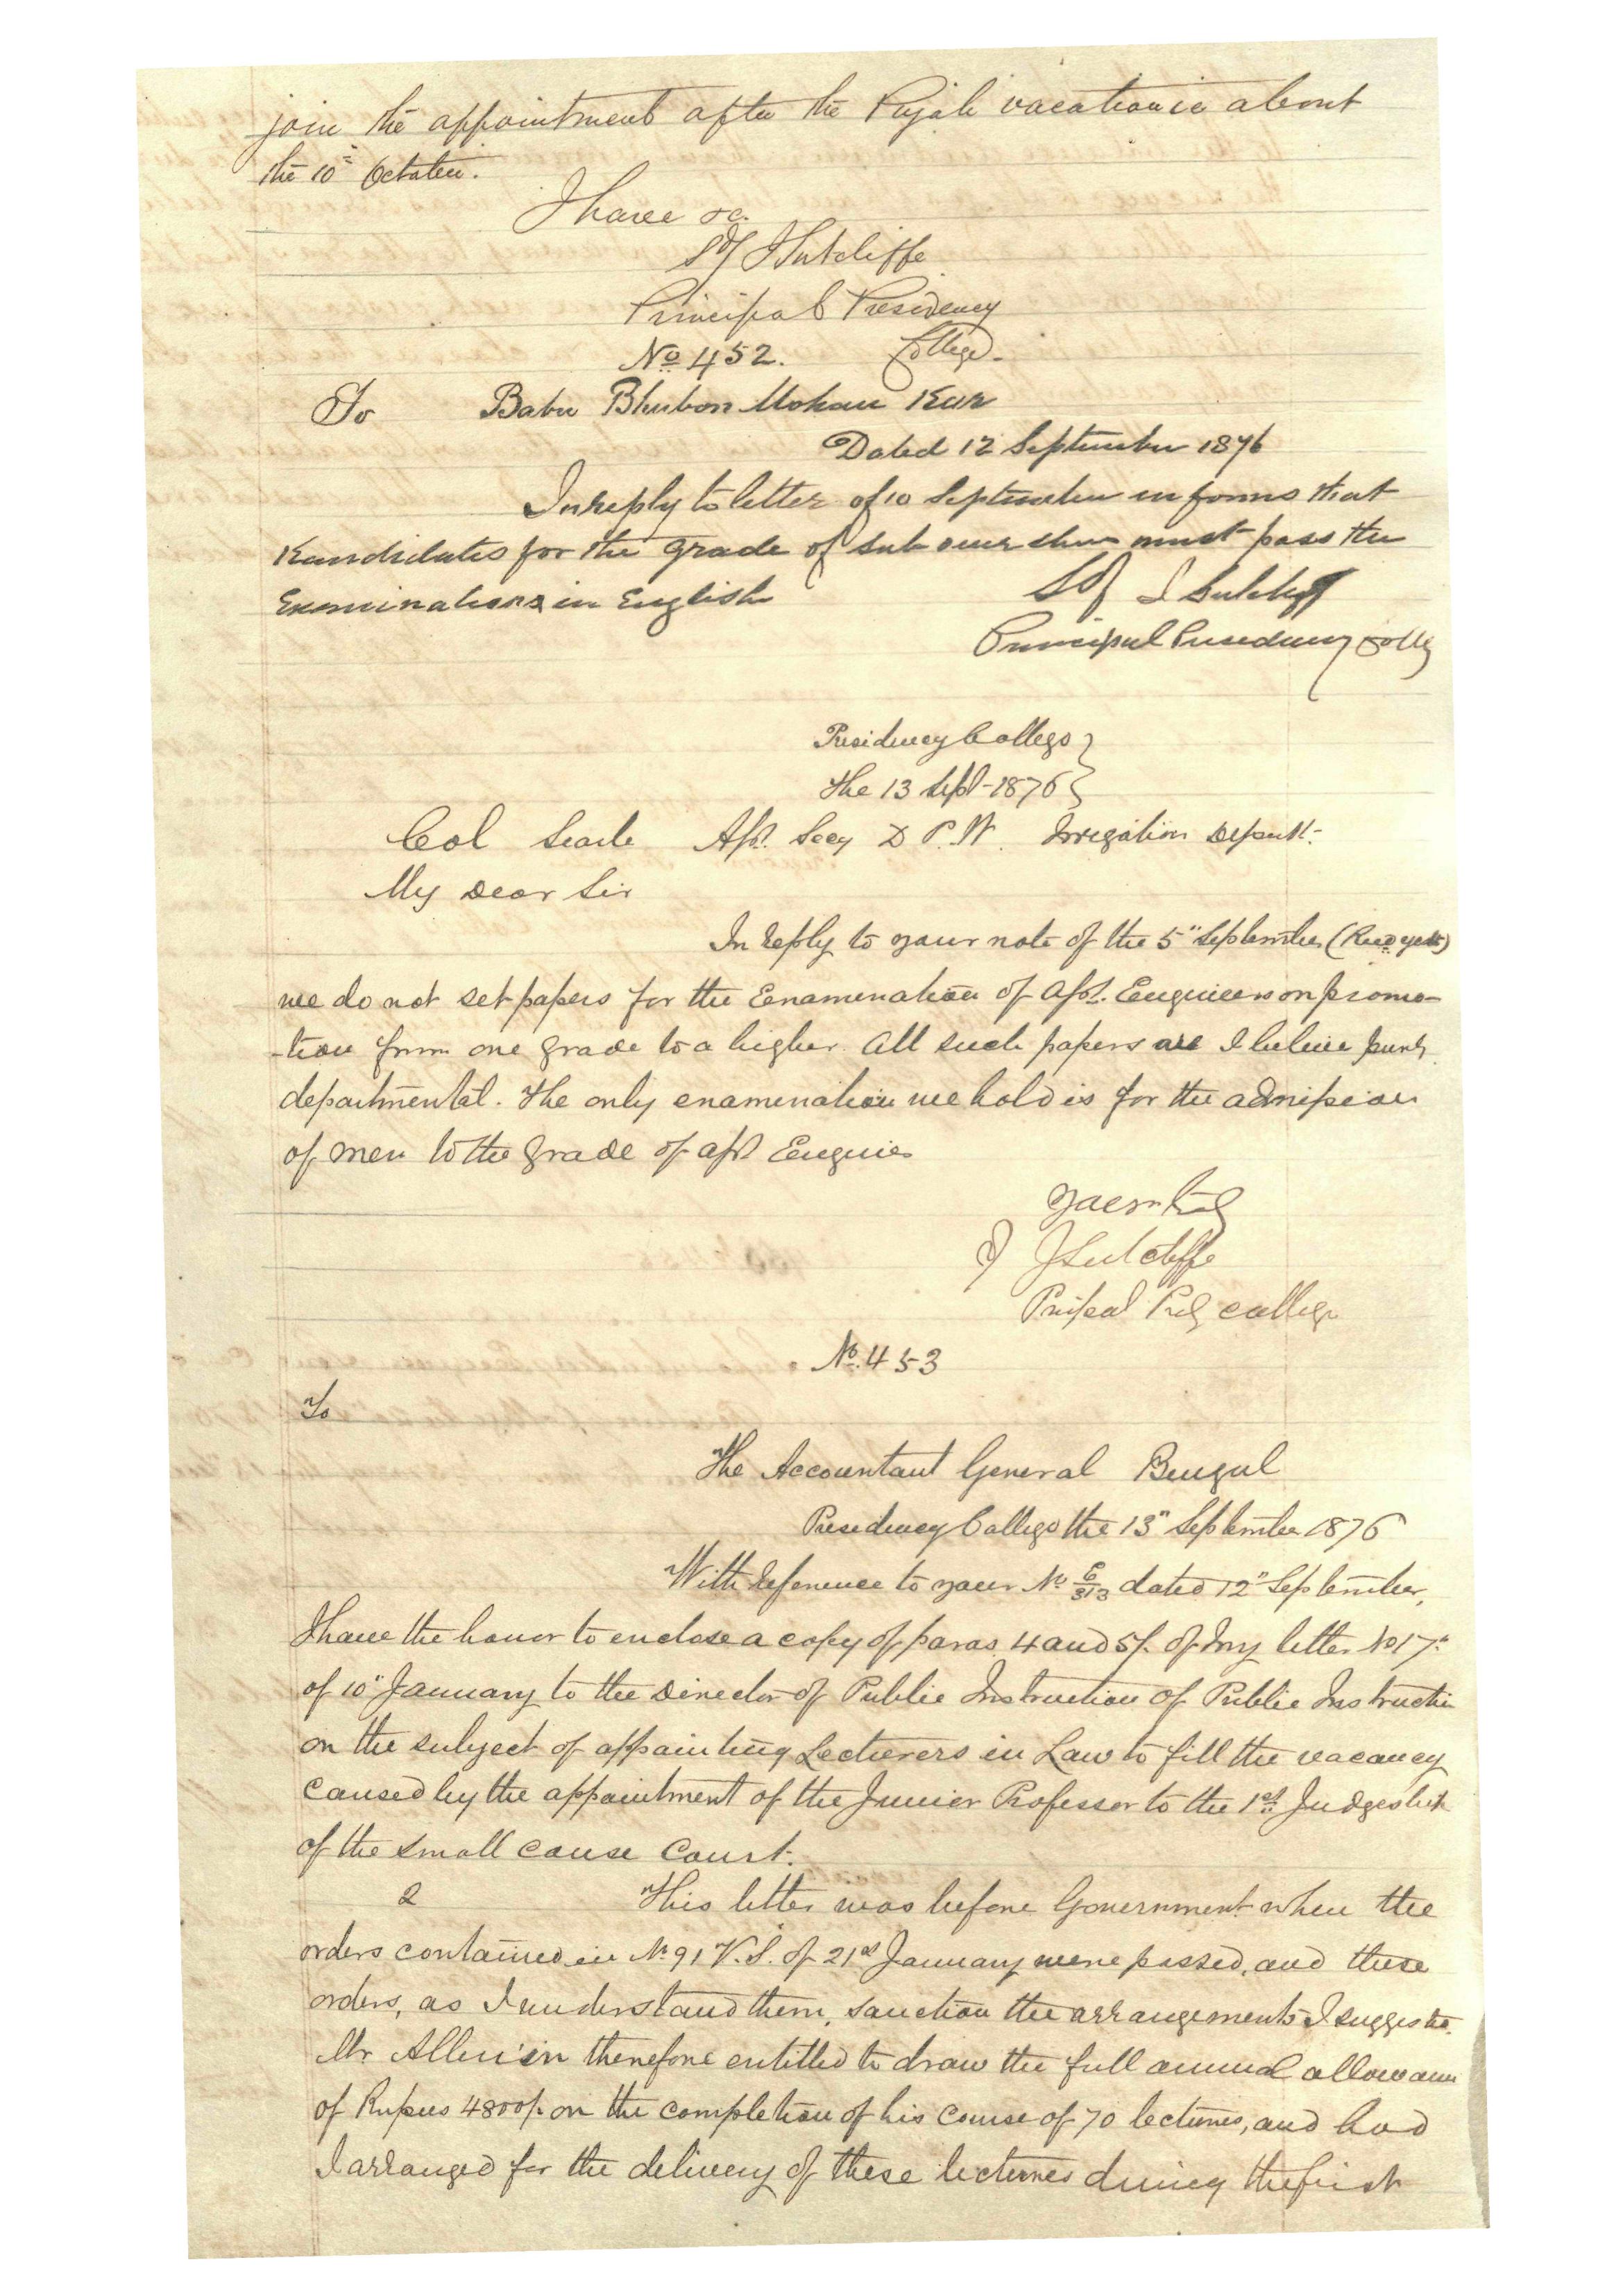 join the appointment after the Pujah vacation ie about
the 10th October.
I have &c.
Sd/ J Sutcliffe
Principal Presidency
College.
No 452.
To Babu Bhubon Mohan Kur
Dated 12 September 1876
In reply to letter of 10 September informs that
Kandidates for the grade of sub overseer must pass the
Examinations in English
Sd/ J Sutcliffe
Principal Presidency Colleg
Presidency College
The 13 Sept-1876
Col Searle Asst. Secy D P. W. Irregation Depautt.
My Dear Sir
In reply to your note of the 5" September (Recd yest)
we do not set papers for the Examenation of Asst. Engineers on promo-
-tion from one grade to a higher. All such papers are I believe purely
departmental. The only examenation we hold is for the admission
of men to the grade of asst Engineer
Yours truly
Sd/ J Sutcliffe
Pripal Presy College
No. 453
To
The Accountant General Bengal
Presidency College the 13" September 1876
With reference to your No 313 dated 12" September,
I have the honor to enclose a copy of paras 4 and 5/. of my letter No 17."
of 10" January to the Director of Public Instruction of Public Instructi
on the subject of appointing Lecturers in Law to fill the vacancy
caused by the appointment of the Junior Professor to the 1st Judgeship
of the small cause Court.
2 This letter was before Government when the
orders contained in No 91 V.S. of 21st January were passed, and these
orders, as I understand them, sanction the arrangements I suggested.
Mr Allen is therefore entitled to draw the full annual allowance
of Rupees 4800/. on the completion of his course of 70 lectures, and had
I arranged for the delivery of these lectures during the first